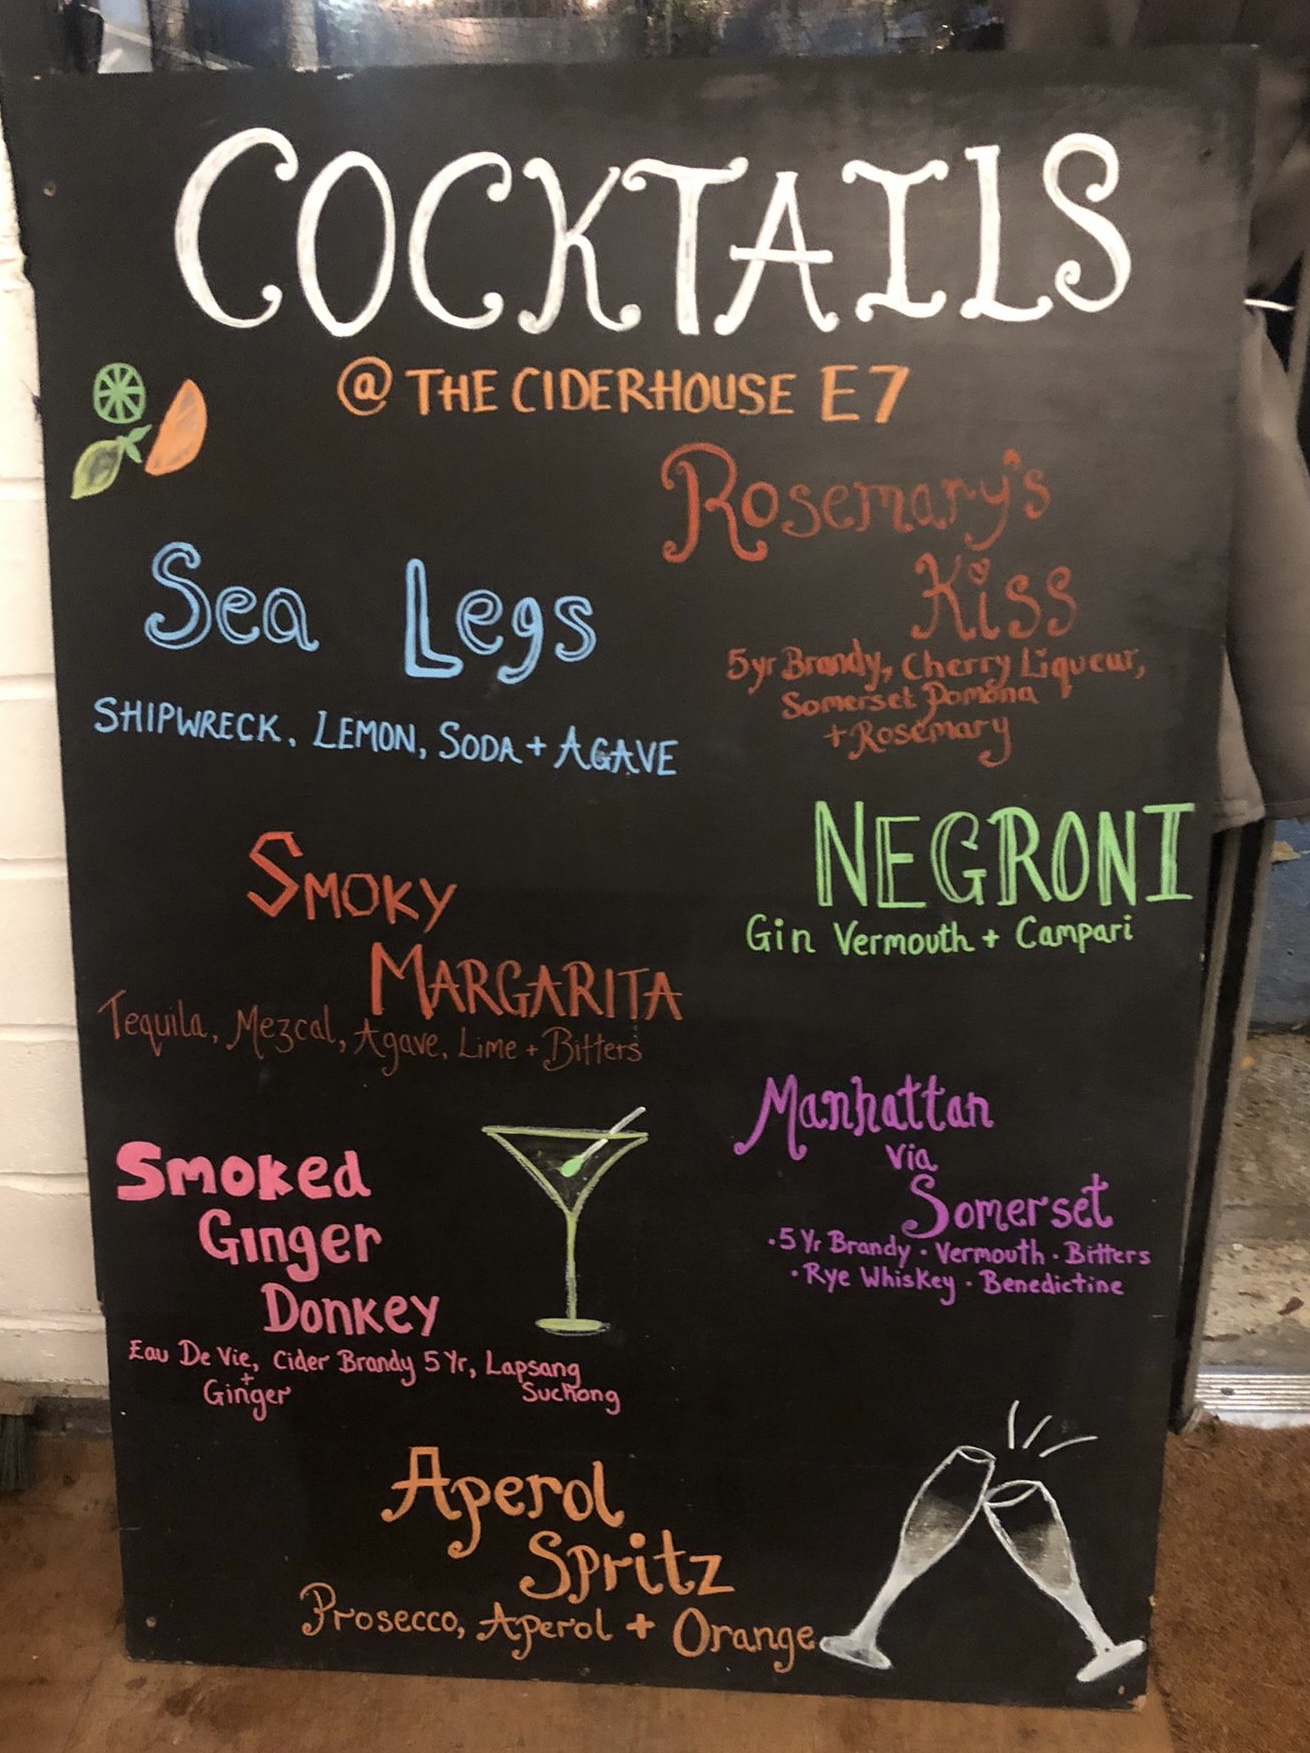 COCKTAILS
@ THE CIDERHOUSE E7
Rosemary's
Kiss
5yr Brandy, Cherry Liqueur,
Somerset Pomona
+ Rosemary
Sea Legs
SHIPWRECK, LEMON, SODA + AGAVE
NEGRONI
Gin Vermouth + Campari
SMOKY
MARGARITA
Tequila, Mezcal, Agave, Lime + Bitters
Manhattan
Via
Somerset
·5 Yr Brandy · Vermouth · Bitters
·Rye Whiskey · Benedictine
Smoked
Ginger
Donkey
Eau De Vie, Cider Brandy 5 Yr, Lapsang
Suchong
+
Ginger
Aperol
Spritz
Prosecco, Aperol + Orange